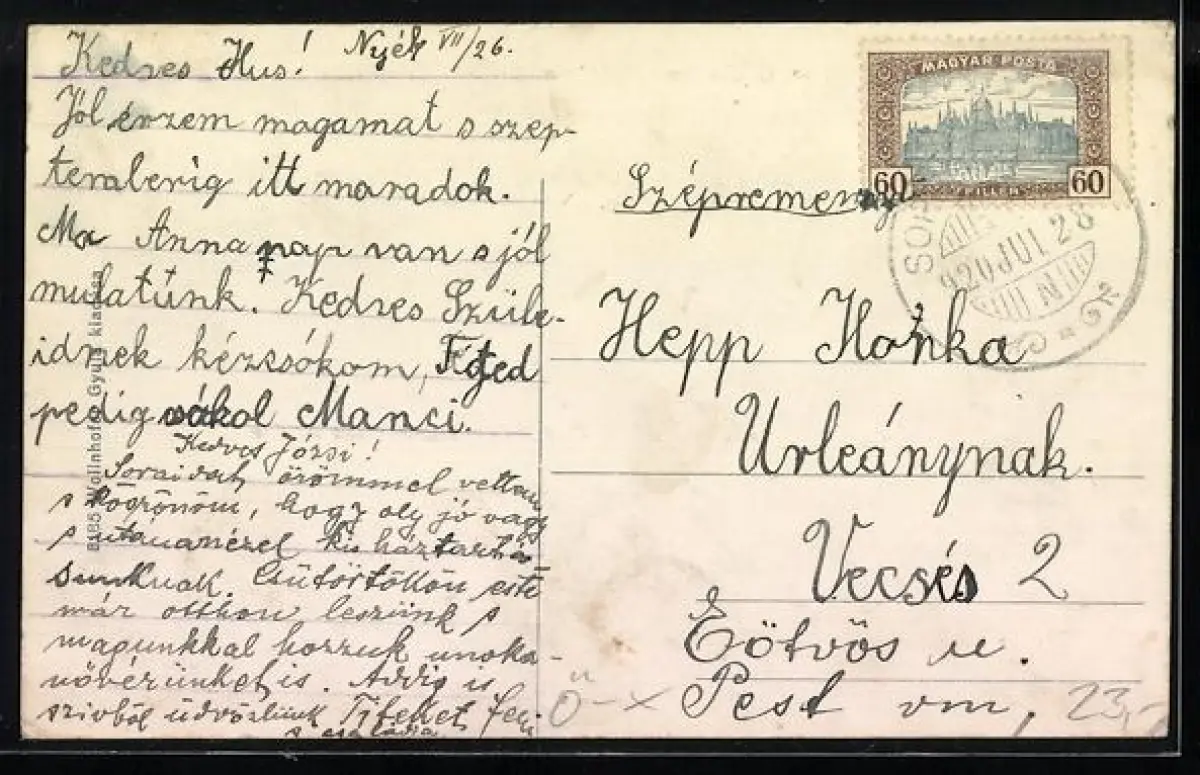 Kedves Hus! Nyék VII/26.
Jól érzem magamat s szep-
temberig itt maradok.
Ma Anna nap van s jól
mulatúnk. Kedves Szüle-
idnek kézcsókom,
pedig Manci.
Kedves Józsi!
Soraidat örömmel vettem
s köszönöm, hogy oly jó vagy
s utánanézel kis háztartá-
sunknak. Csütörtökön este
már otthon leszünk s
magunkkal hozzuk unoka-
növérünket is. Addig is
szivből üdvözlünk Titeket
s családja
Gyula kiadása
MAGYAR POSTA
60 FILLÉR 60
920 JUL 28
Szépremény
Hepp Ilonka
Urleánynak.
Vecsés 2
Eötvös u.
Pest vm,
23,-